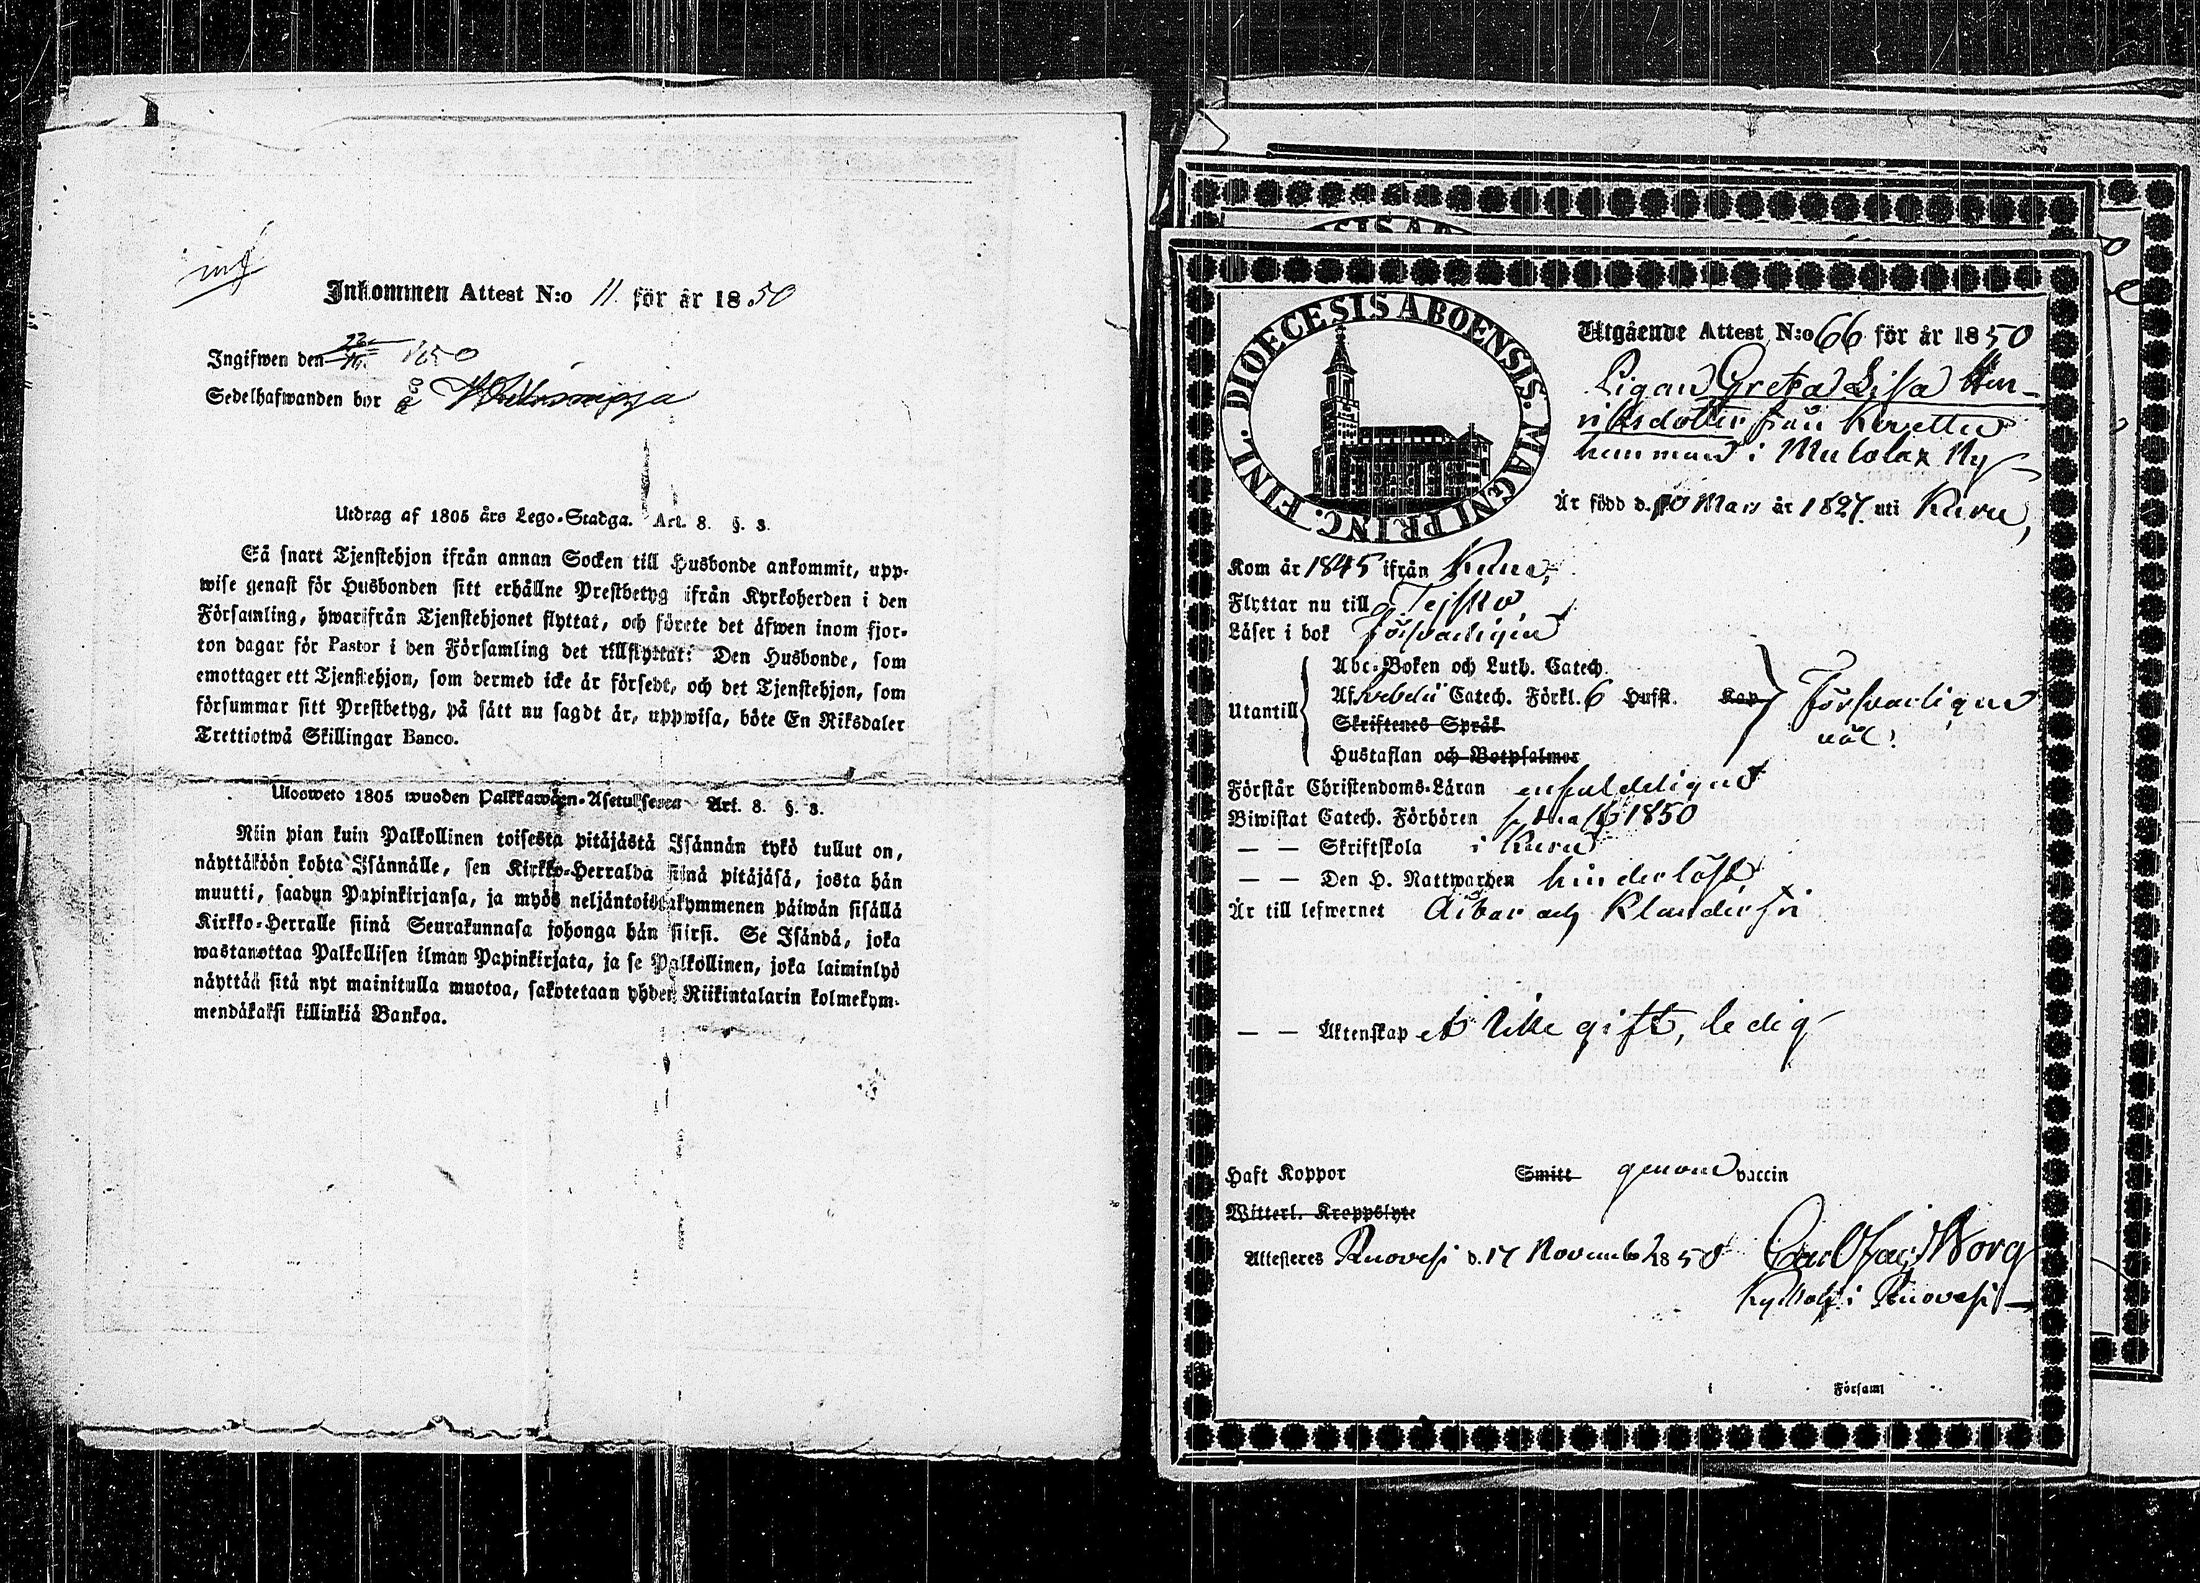 Inkommen Attest N:o 11 för år 1850
Ingifwen den 1850
Sedelhafwanden bor på
Utdrag af 1805 års Lego-Stadga. Art. 8. §. 3.
Så snart Tjenstehjon ifrån annan Socken till Husbonde ankommit, upp-
wise genast för Husbonden sitt erhållne Prestbetyg ifrån Kyrkoherden i den
Församling, hwarifrån Tjenstehjonet flyttat, och förete det äfwen inom fjor-
ton dagar för Pastor i den Församling det tillflyttat: Den Husbonde, som
emottager ett Tjenstehjon, som dermed icke är försedt, och det Tjenstehjon, som
försummar sitt Prestbetyg, på sätt nu sagdt är, uppwisa, böte En Riksdaler
Trettiotwå Skillingar Banco.
Ulosweto 1805 wuoden Palkkawäen-Asetuksesta Art. 8. §. 3.
Niin pian kuin Palkollinen toisesta pitäjästä Isännän tykö tullut on,
näyttäköön kohta Isännälle, sen Kirkko-Herralda siinä pitäjäsä, josta hän
muutti, saadun Papinkirjansa, ja myös neljäntoistakymmenen päiwän sisällä
Kirkko-Herralle siinä Seurakunnasa johonga hän siirsi. Se Isändä, joka
wastanottaa Palkollisen ilman Papinkirjata, ja se Palkollinen, joka laiminlyö
näyttää sitä nyt mainitulla muotoa, sakotetaan yhden Riikintalarin kolmekym-
mendäkaksi killinkiä Bankoa.
DIOECESIS ABOENSIS. MAGNI PRINC. FINL.
Utgående Attest N:o 66 för år 1850
Pigan Greta Lisa Hen-
riksdotter från Kerettu
hemman i Muhola Ny
Är född d. 10 Mars år 1827 uti Kuru,
Kom år 1845 ifrån Kuru,
Flyttar nu till Tejsko
Läser i bok försvarligen
Utantill
Abc-Boken och Luth. Catech.
Af Svebelii Catech. Förkl. 6 Hufst. Kap
Skriftenes Språk
Hustaflan och Botpsalmer
Försvarligen
väl.
Förstår Christendoms-Läran enfaldeligen
Biwistat Catech. Förhören sedna 1850
— — Skriftskola i Kuru
— — Den H. Nattwarden hinderlöst
Är till lefwernet ärbar och klanderfri
— — Äktenskap ej gift, ledig
Haft Koppor Smitt genom vaccin
Witterl. Kroppslyte
Attesteres Ruovesi d. 17 November 1850
i Ruovesi
i Församl